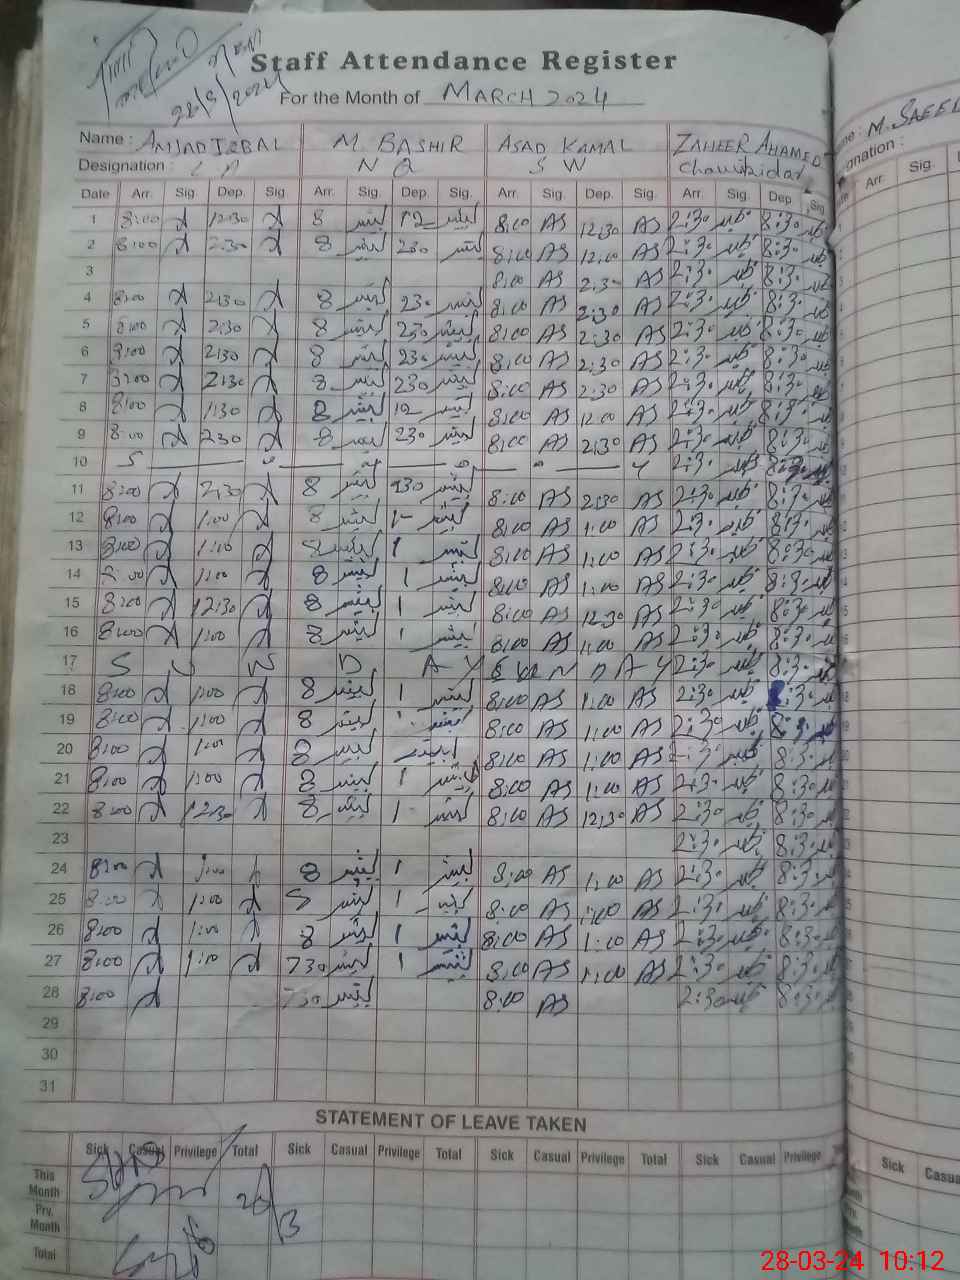 28/3/2024
Staff Attendance Register
For the Month of MARCH 2024
Name : AMJAD IQBAL M. BASHIR ASAD KAMAL ZAHEER AHAMED
Designation : N Q S W Chowkidar
Date Arr. Sig. Dep. Sig. Arr. Sig. Dep. Sig. Arr. Sig. Dep. Sig. Arr. Sig. Dep. Sig.
1 8:00 12:30 8 بشیر 12 بشیر 8:00 AS 12:30 AS 2:30 ظہیر 8:30 ظہیر
2 8:00 2:30 8 بشیر 230 بشیر 8:00 AS 12:00 AS 2:30 ظہیر 8:30 ظہیر
3 8:00 AS 2:30 AS 2:30 ظہیر 8:30 ظہیر
4 8:00 2:30 8 بشیر 230 بشیر 8:00 AS 2:30 AS 2:30 ظہیر 8:30 ظہیر
5 8:00 2:30 8 بشیر 230 بشیر 8:00 AS 2:30 AS 2:30 ظہیر 8:30 ظہیر
6 8:00 2:30 8 بشیر 230 بشیر 8:00 AS 2:30 AS 2:30 ظہیر 8:30 ظہیر
7 8:00 2:30 8 بشیر 230 بشیر 8:00 AS 2:30 AS 2:30 ظہیر 8:30 ظہیر
8 8:00 1:30 8 بشیر 12 بشیر 8:00 AS 12:00 AS 2:30 ظہیر 8:30 ظہیر
9 8:00 230 8 بشیر 230 بشیر 8:00 AS 2:30 AS 2:30 ظہیر 8:30 ظہیر
10 S 2:30 ظہیر 8:30 ظہیر
11 8:00 2:30 8 بشیر 230 بشیر 8:00 AS 2:30 AS 2:30 ظہیر 8:30 ظہیر
12 8:00 1:00 8 بشیر 1 بشیر 8:00 AS 1:00 AS 2:30 ظہیر 8:30 ظہیر
13 8:00 1:00 8 بشیر 1 بشیر 8:00 AS 1:00 AS 2:30 ظہیر 8:30 ظہیر
14 8:00 1:00 8 بشیر 1 بشیر 8:00 AS 1:00 AS 2:30 ظہیر 8:30 ظہیر
15 8:00 12:30 8 بشیر 1 بشیر 8:00 AS 12:30 AS 2:30 ظہیر 8:30 ظہیر
16 8:00 1:00 8 بشیر 1 بشیر 8:00 AS 1:00 AS 2:30 ظہیر 8:30 ظہیر
17 S U N D A Y S U N D A Y 2:30 ظہیر 8:30 ظہیر
18 8:00 1:00 8 بشیر 1 بشیر 8:00 AS 1:00 AS 2:30 ظہیر 8:30 ظہیر
19 8:00 1:00 8 بشیر 1 بشیر 8:00 AS 1:00 AS 2:30 ظہیر 8:30 ظہیر
20 8:00 1:00 8 بشیر 1 بشیر 8:00 AS 1:00 AS 2:30 ظہیر 8:30 ظہیر
21 8:00 1:00 8 بشیر 1 بشیر 8:00 AS 1:00 AS 2:30 ظہیر 8:30 ظہیر
22 8:00 12:30 8 بشیر 1 بشیر 8:00 AS 12:30 AS 2:30 ظہیر 8:30 ظہیر
23 2:30 ظہیر 8:30 ظہیر
24 8:00 1:00 8 بشیر 1 بشیر 8:00 AS 1:00 AS 2:30 ظہیر 8:30 ظہیر
25 8:00 1:00 8 بشیر 1 بشیر 8:00 AS 1:00 AS 2:30 ظہیر 8:30 ظہیر
26 8:00 1:00 8 بشیر 1 بشیر 8:00 AS 1:00 AS 2:30 ظہیر 8:30 ظہیر
27 8:00 1:00 730 بشیر 1 بشیر 8:00 AS 1:00 AS 2:30 ظہیر 8:30 ظہیر
28 8:00 730 بشیر 8:00 AS 2:30 ظہیر 8:30 ظہیر
29
30
31
STATEMENT OF LEAVE TAKEN
Sick Casual Privilege Total Sick Casual Privilege Total Sick Casual Privilege Total Sick Casual Privilege
This Month
Prv. Month
Total
28/3
M. SAEED
Arr. Sig.
Sick Casual
28-03-24 10:12